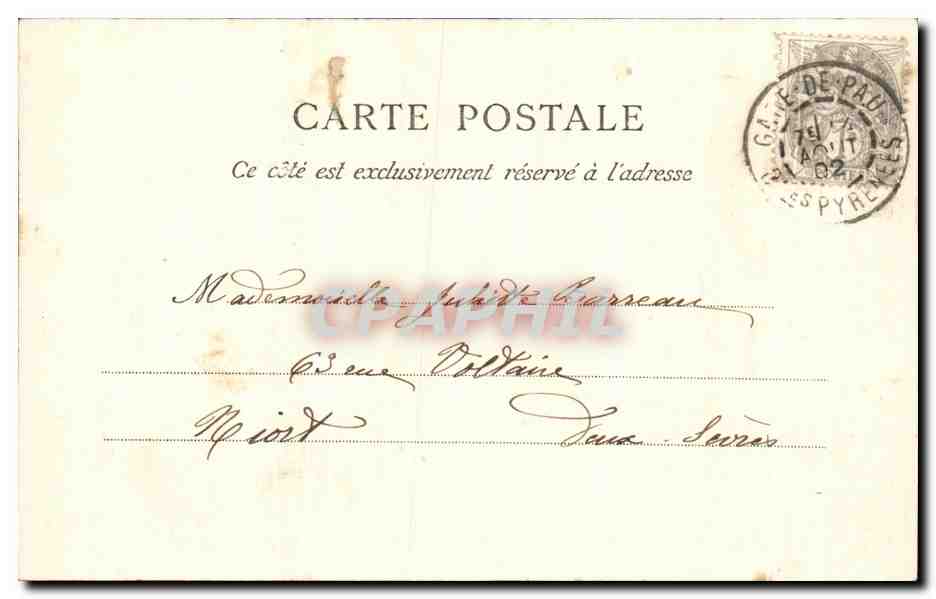 CARTE POSTALE
Ce côté est exclusivement réservé à l'adresse
GARE-DE-PAU
7E
AOUT
02
Bses PYRENEES
Mademoiselle Juliette Barreau
CPAPHIL
63 rue Voltaire
Niort Deux-Sèvres